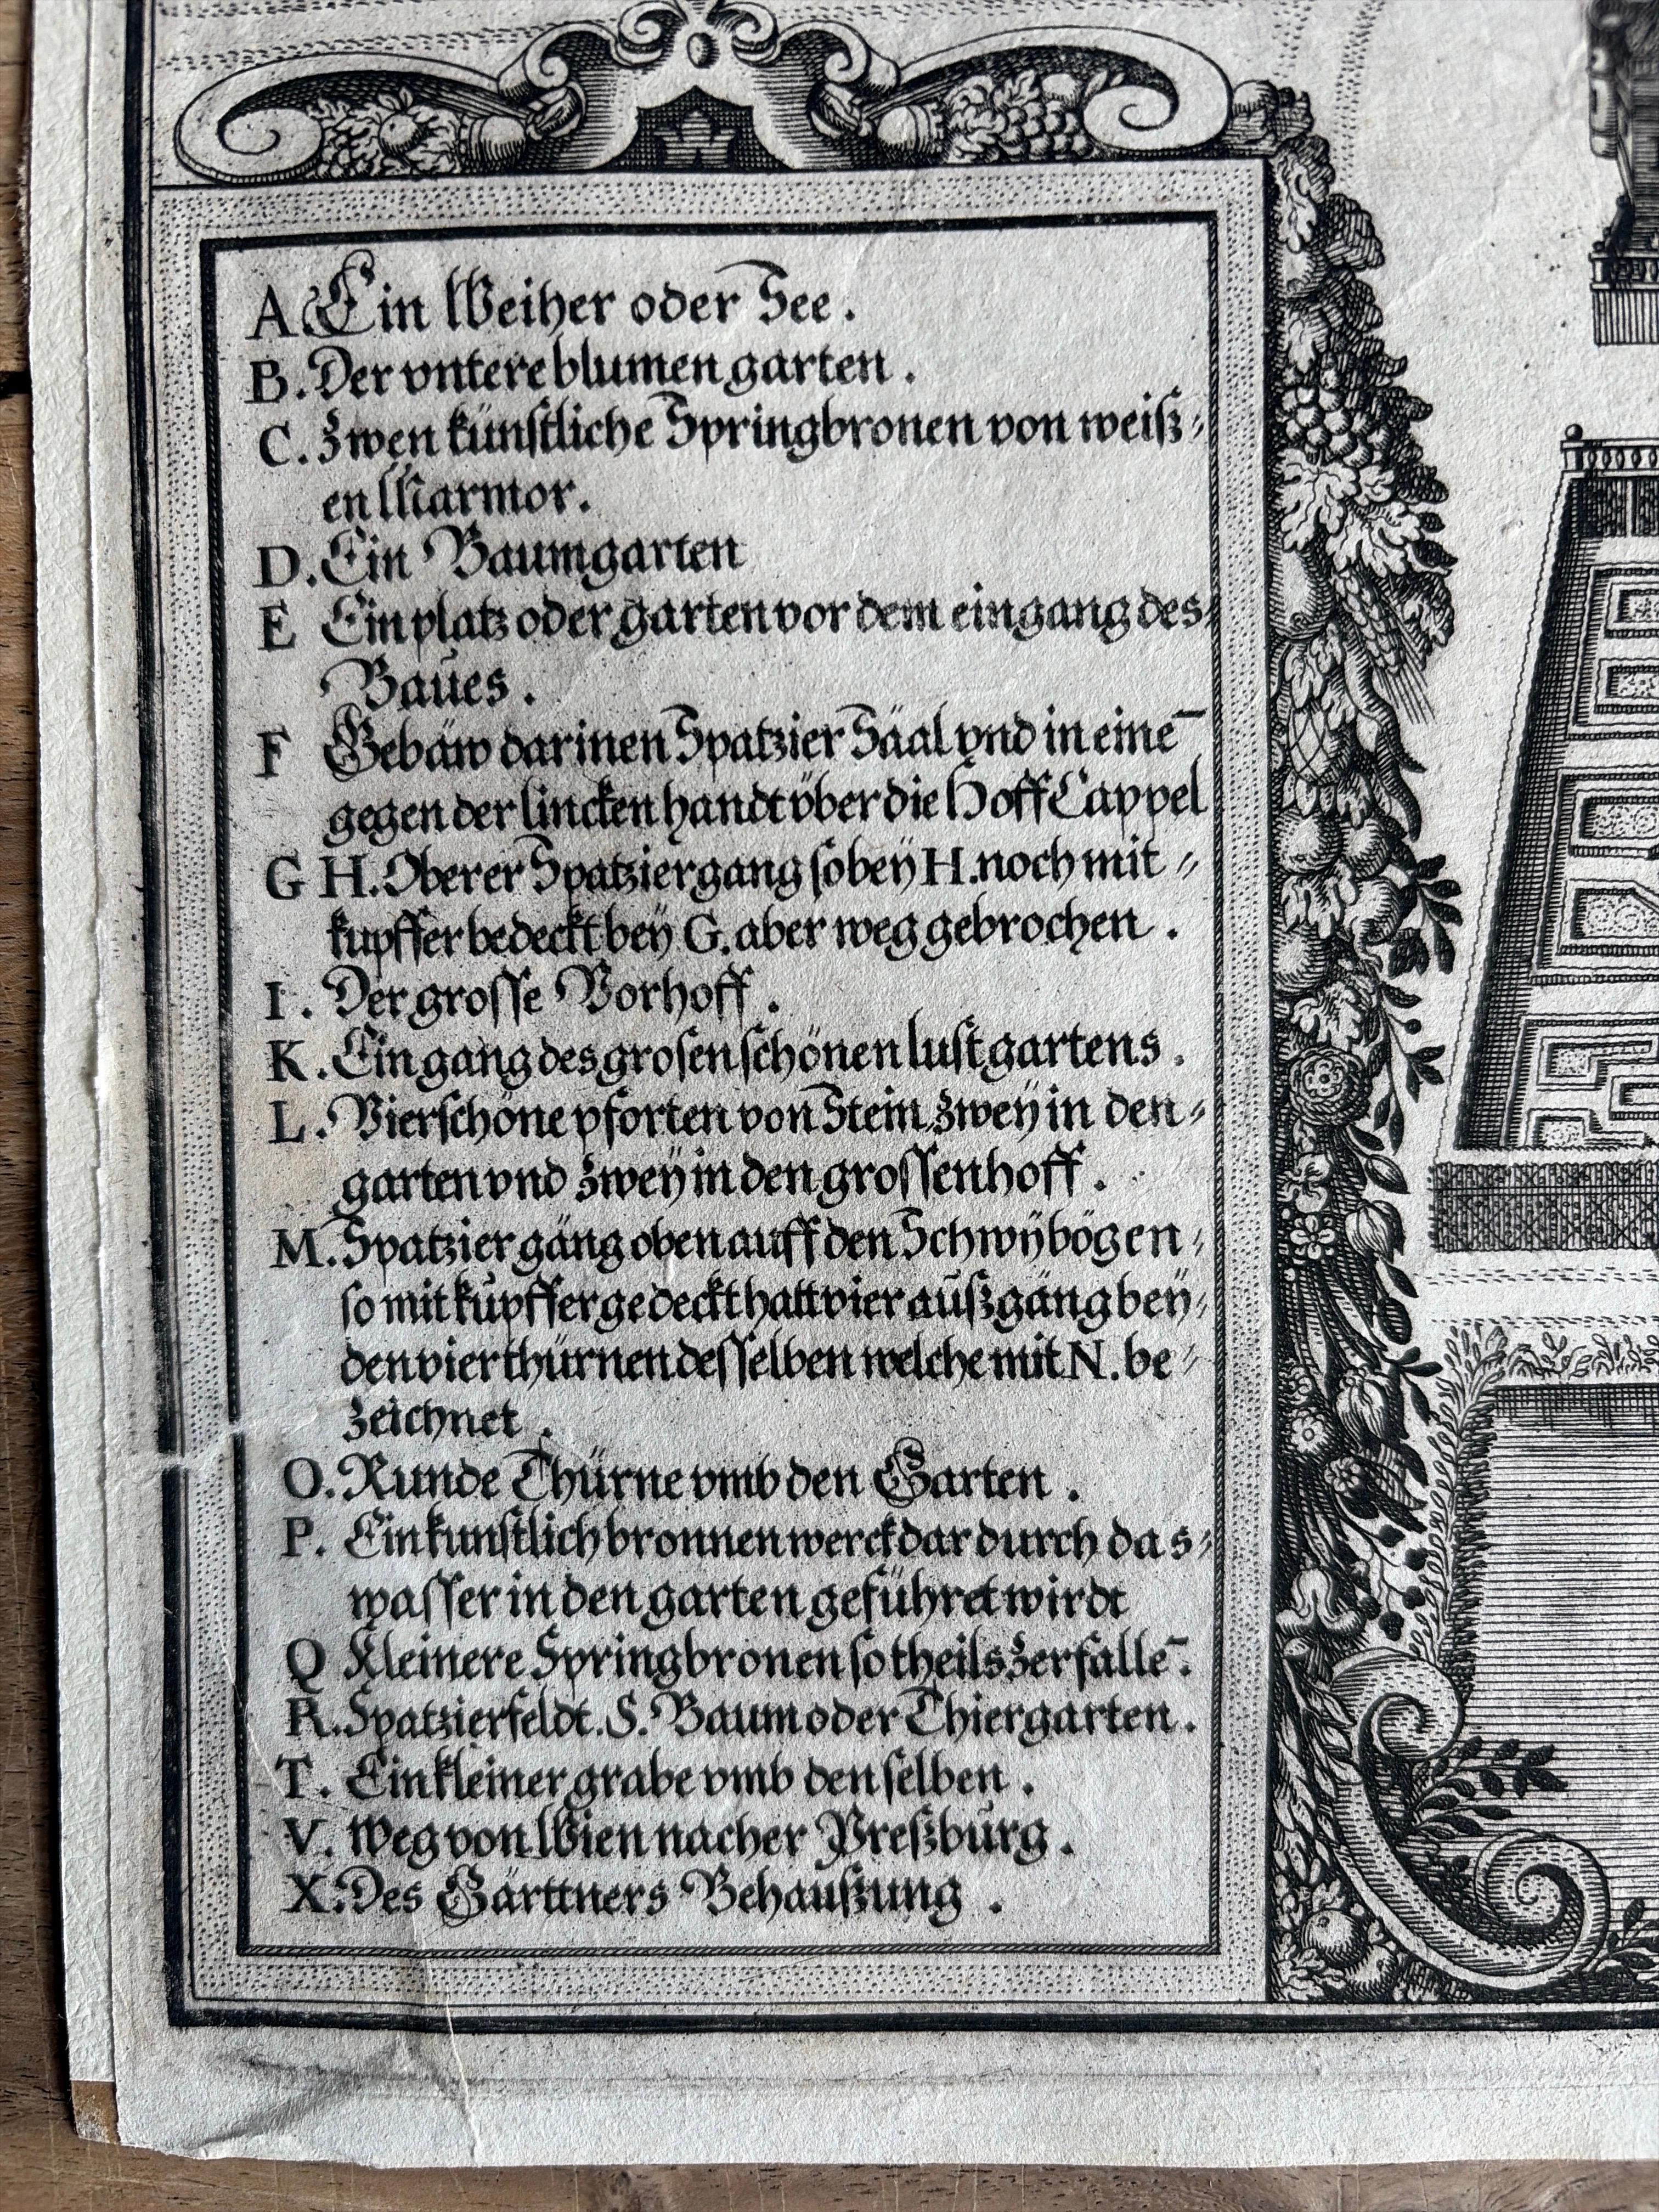 A. Ein Weiher oder See.
B. Der vntere blumen garten.
C. Zwen künſtliche Springbronen von weiß⸗
en Marmor.
D. Ein Baumgarten
E Ein platz oder garten vor dem eingang des⸗
Baües.
F Gebäw darinen Spatzier Säal vnd in einē
gegen der lincken handt vber die Hoff Cappel
G H. Oberer Spatziergang ſo beÿ H. noch mit⸗
kupffer bedeckt beÿ G. aber weg gebrochen.
I. Der groſſe Vorhoff.
K. Eingang des groſen ſchönen luſtgartens.
L. Vier ſchöne pforten von Stein, zweÿ in den⸗
garten vnd zweÿ in den groſſen hoff.
M. Spatziergäng oben auff den Schwÿbögen⸗
ſo mit kúpffer gedeckt hatt vier aúßgäng beÿ⸗
den vier thürnen deſſelben welche mit N. be⸗
zeichnet.
O. Runde Thürne vmb den Garten.
P. Ein kunſtlich bronnenwerck dar durch das⸗
waſſer in den garten geführet wirdt
Q Kleinere Springbronen ſo theils zerfallē.
R. Spatzierfeldt. S. Baum oder Thiergarten.
T. Ein kleiner grabe vmb den ſelben.
V. Weg von Wien nacher Preßbúrg.
X. Des Gärttners Behaußung.